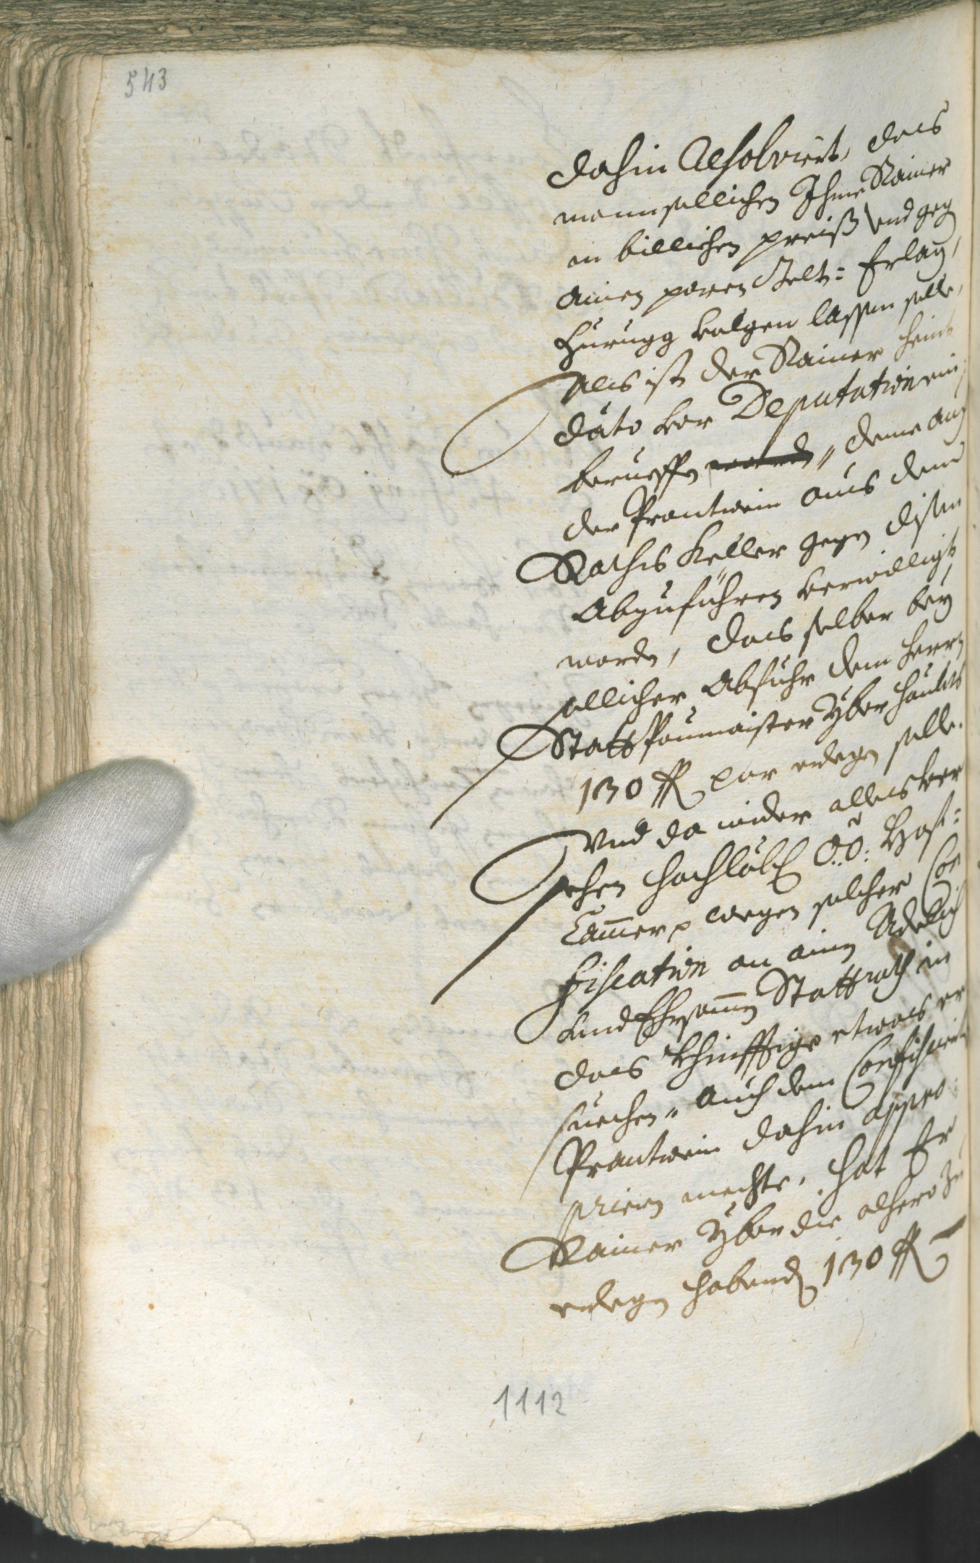 543
dahin Resolviert, das
man solichen Ihme Rainer
in billichen preiß vnd geg
ainen paren Gelt= Erlag,
Zurugg volgen lassen solle,
Als ist der Rainer heint
dato vor Deputation ein
berueffen deme auch
der Prantwein aus dem
Rathskeller gegen disem
Abzuführen verwilligt
worden, das selber bey
solicher Abfuhr dem Herrn
Statt Paumaister yberhaubts
130 fl par erlegen solle.
Vnd da wider alles ver
sehen hochlöbl: O:Ö: Hoff=
Cammer, wegen solcher Con
fiscation an ainen Adelich
vnd Ehrsamen Stattrath in
das khünfftige etwas er
suechen, auch dem Confiscirten
Prantwein dahin appro
priiern mechte, hat Er
Rainer yber die alhero zu
erlegen habend 130 fl
1112